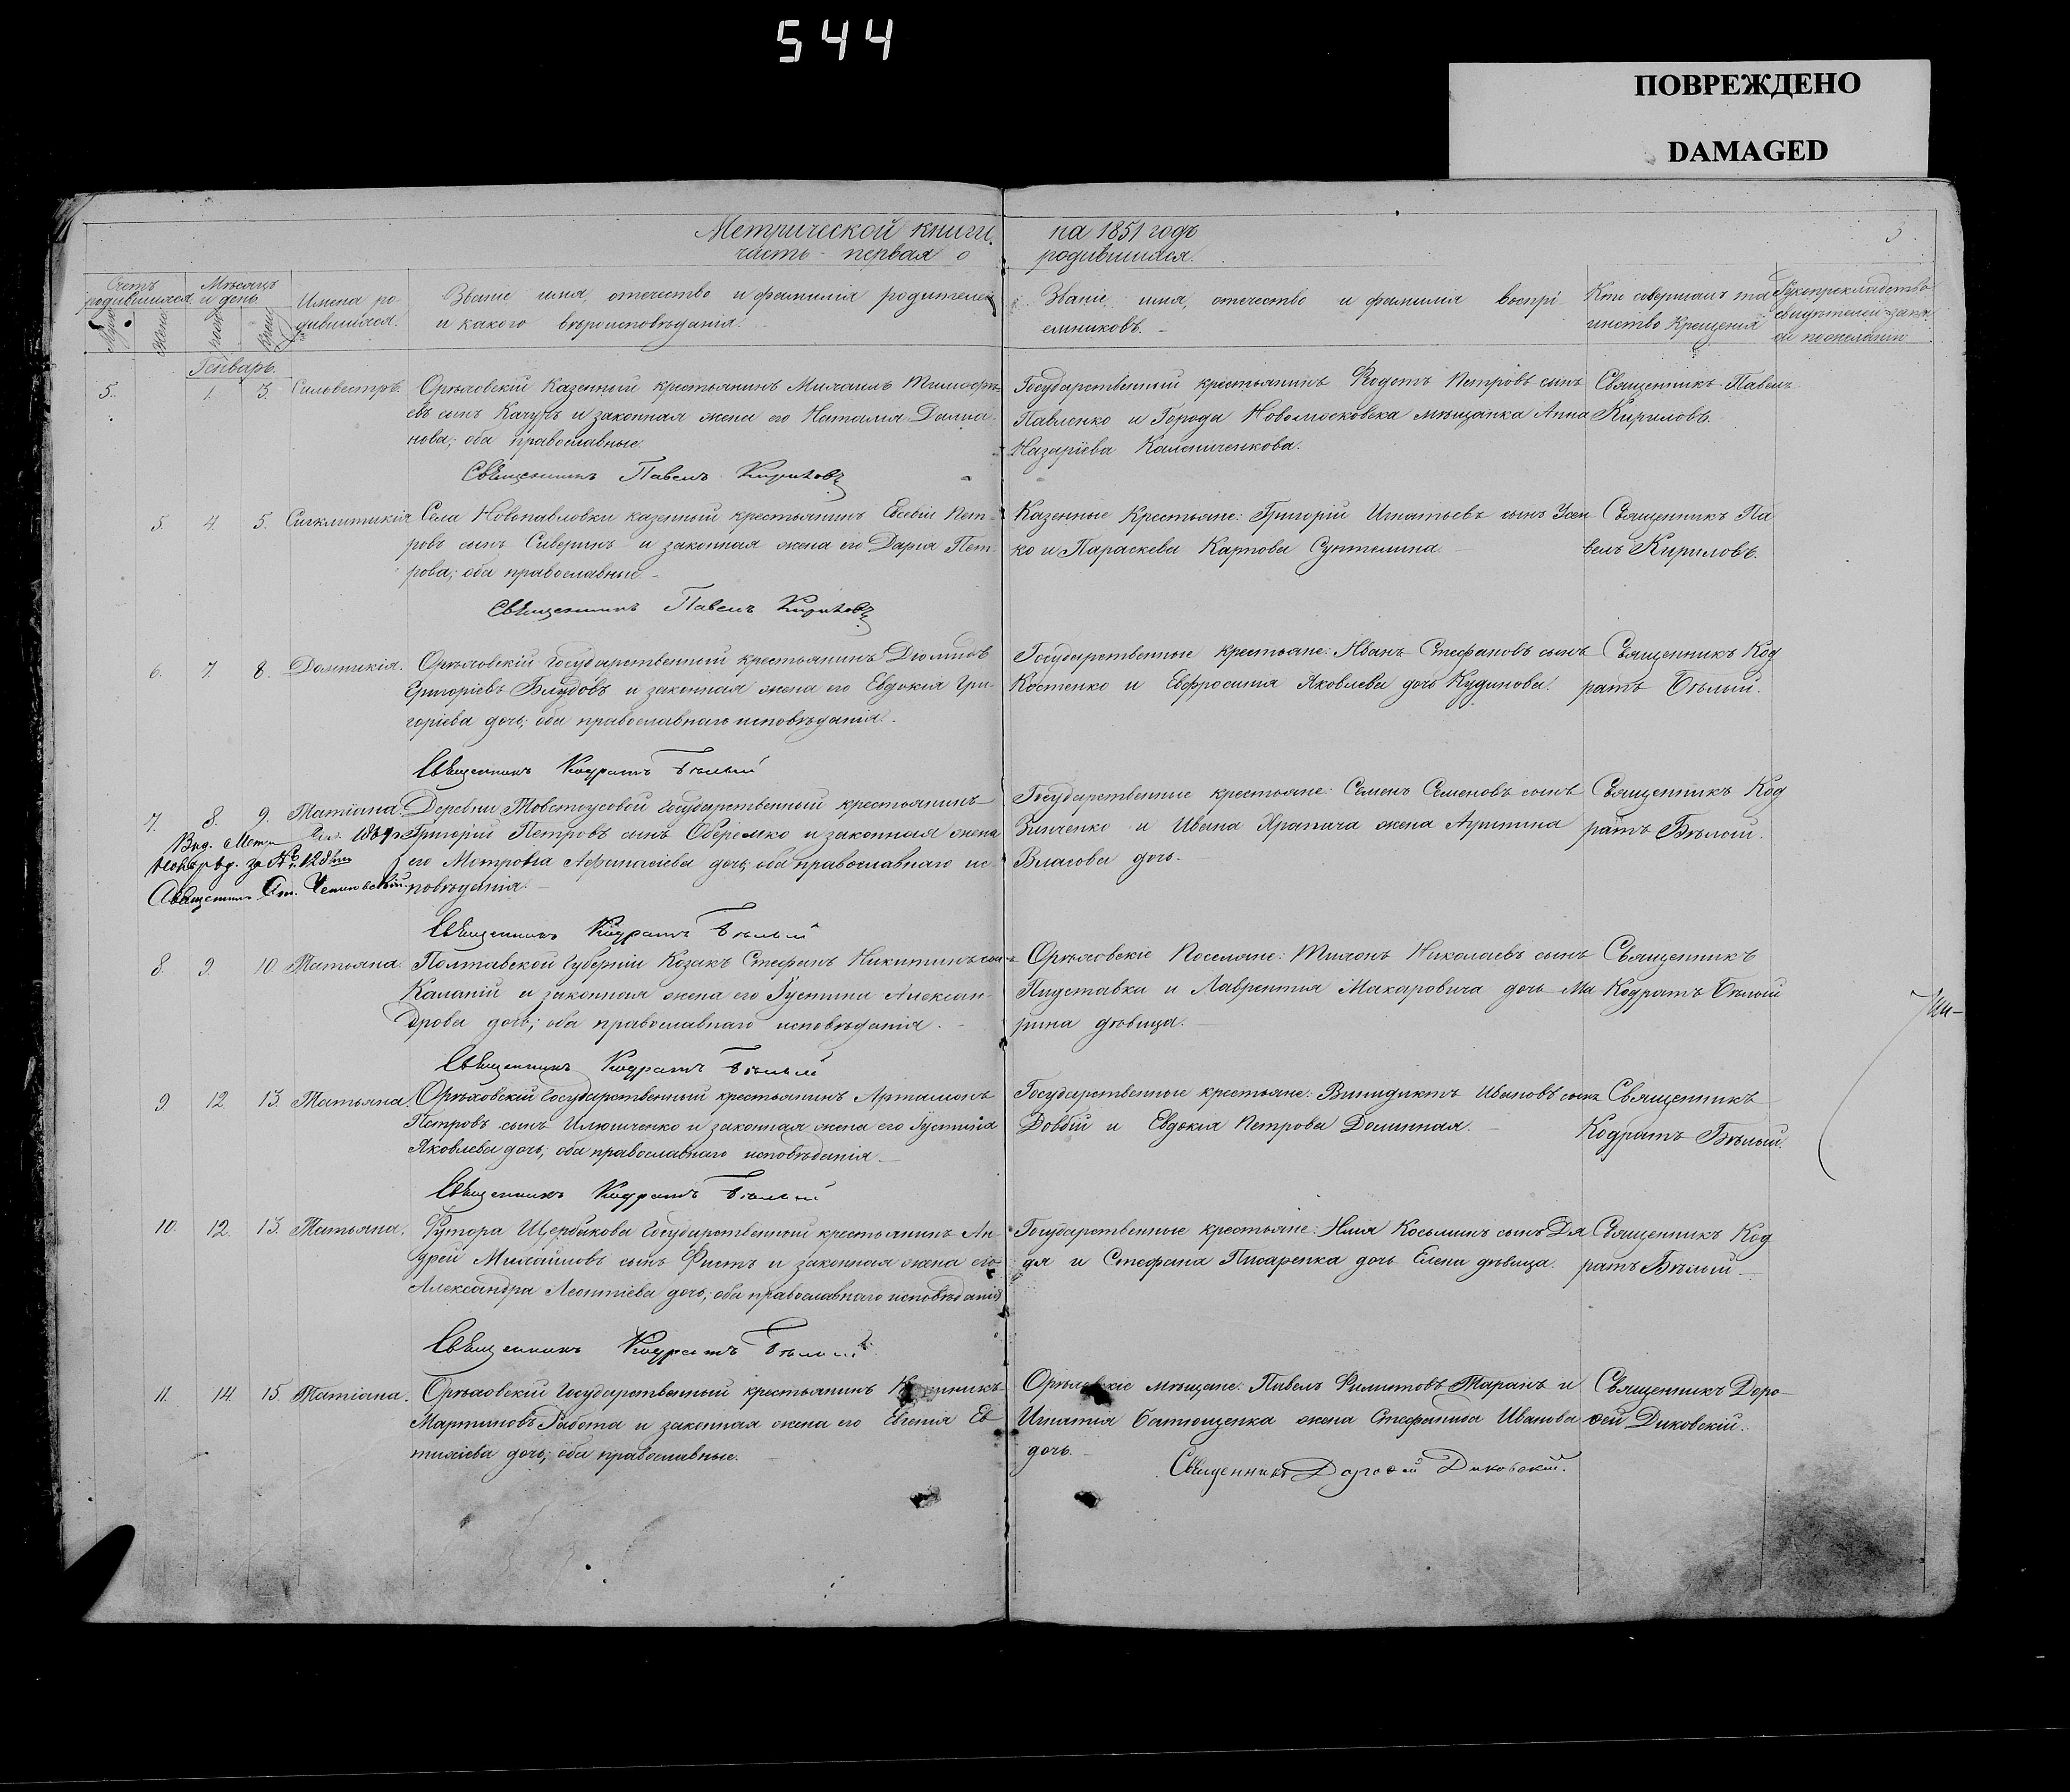 544
ПОВРЕЖДЕНО
DAMAGED
Метрической книги на 1851 годъ
часть первая о родившихся.
Счетъ родившихся
Мѣсяцъ и день
Имена родившихся.
Званіе имя, отечество и фамилія родителей
и какого вѣроисповѣданія.
Званіе, имя, отечество и фамилія воспрі
емниковъ.
Кто совершалъ та
инство Крещенія
Рукоприкладство
свидѣтелей записи
по желанію
Генварь
5. 1. 3. Сильвестръ. Орѣховскій Казенный крестьянинъ Михаилъ Тимофѣ-
евъ сынъ Качуръ и законная жена его Наталія Демиа-
нова; оба православные.
Государственный крестьянинъ Федотъ Петровъ сынъ
Павленко и Города Новомосковска мѣщанка Анна
Назаріева Калениченкова.
Священникъ Павелъ
Кириловъ.
Священникъ Павелъ Кириловъ
5. 4. 5. Сигклитикія Села Новопавловки казенный крестьянинъ Евсевій Пет-
ровъ сынъ Сиверинъ и законная жена его Дарія Пет-
рова; оба православные.
Казенные Крестьяне: Григорій Игнатьевъ сынъ Усен
ко и Параскева Карпова
Священникъ Па
велъ Кириловъ.
Священникъ Павелъ Кириловъ
6. 7. 8. Домникія. Орѣховскій государственный крестьянинъ Діомидъ
Григоріевъ Блудовъ и законная жена его Евдокія Гри-
горіева дочь; оба православнаго исповѣданія.
Государственные крестьяне: Иванъ Стефановъ сынъ
Костенко и Евфросинія Яковлева дочь Кудинова.
Священникъ Код
ратъ Бѣлый.
Священникъ Кодратъ Бѣлый
7. 8. 9. Татіана. Деревни Товстоусовой государственный крестьянинъ
Григорій Петровъ сынъ Оберемко и законная жена
его Мотрона Афанасіева дочь; оба православнаго ис-
повѣданія.
Выд. Мет.
за № 128
Священникъ
Государственные крестьяне: Семенъ Семеновъ сынъ
Зинченко и Ивана Храпача жена Агрипина
Власова дочь.
Священникъ Код
ратъ Бѣлый.
Священникъ Кодратъ Бѣлый
8. 9. 10. Татьяна. Полтавской губерніи Козакъ Стефанъ Никитинъ сынъ
Каланій и законная жена его Іустина Алексан-
дрова дочь; оба православнаго исповѣданія.
Орѣховскіе Поселяне: Тихонъ Николаевъ сынъ
Пидставка и Лаврентія Макаровича дочь Ма
рина дѣвица.
Священникъ
Кодратъ Бѣлый
Священникъ Кодратъ Бѣлый
9. 12. 13. Татьяна. Орѣховскій государственный крестьянинъ Артамонъ
Петровъ сынъ Илюшченко и законная жена его Іустина
Яковлева дочь; оба православнаго исповѣданія.
Государственные крестьяне: Винидиктъ Ивановъ сынъ
Довбій и Евдокія Петрова Долинная.
Священникъ
Кодратъ Бѣлый.
Священникъ Кодратъ Бѣлый
10. 12. 13. Татьяна. Хутора Щербакова государственный крестьянинъ Ан-
дрей Михайловъ сынъ Фистъ и законная жена его
Александра Леонтіева дочь; оба православнаго исповѣданія
Государственные крестьяне: Илія Косьминъ сынъ Дя
дя и Стефана Писаренка дочь Елена дѣвица.
Священникъ Код
ратъ Бѣлый
Священникъ Кодратъ Бѣлый
11. 14. 15. Татіана. Орѣховскій государственный крестьянинъ
Мартиновъ Работа и законная жена его Евгенія Ев
тихіева дочь; оба православные.
Орѣховскіе мѣщане: Павелъ Филиповъ Таранъ и
Игнатія жена Стефанида Иванова
дочь.
Священникъ Доро-
ѳей Диковскій.
Священникъ Дороѳей Диковскій.